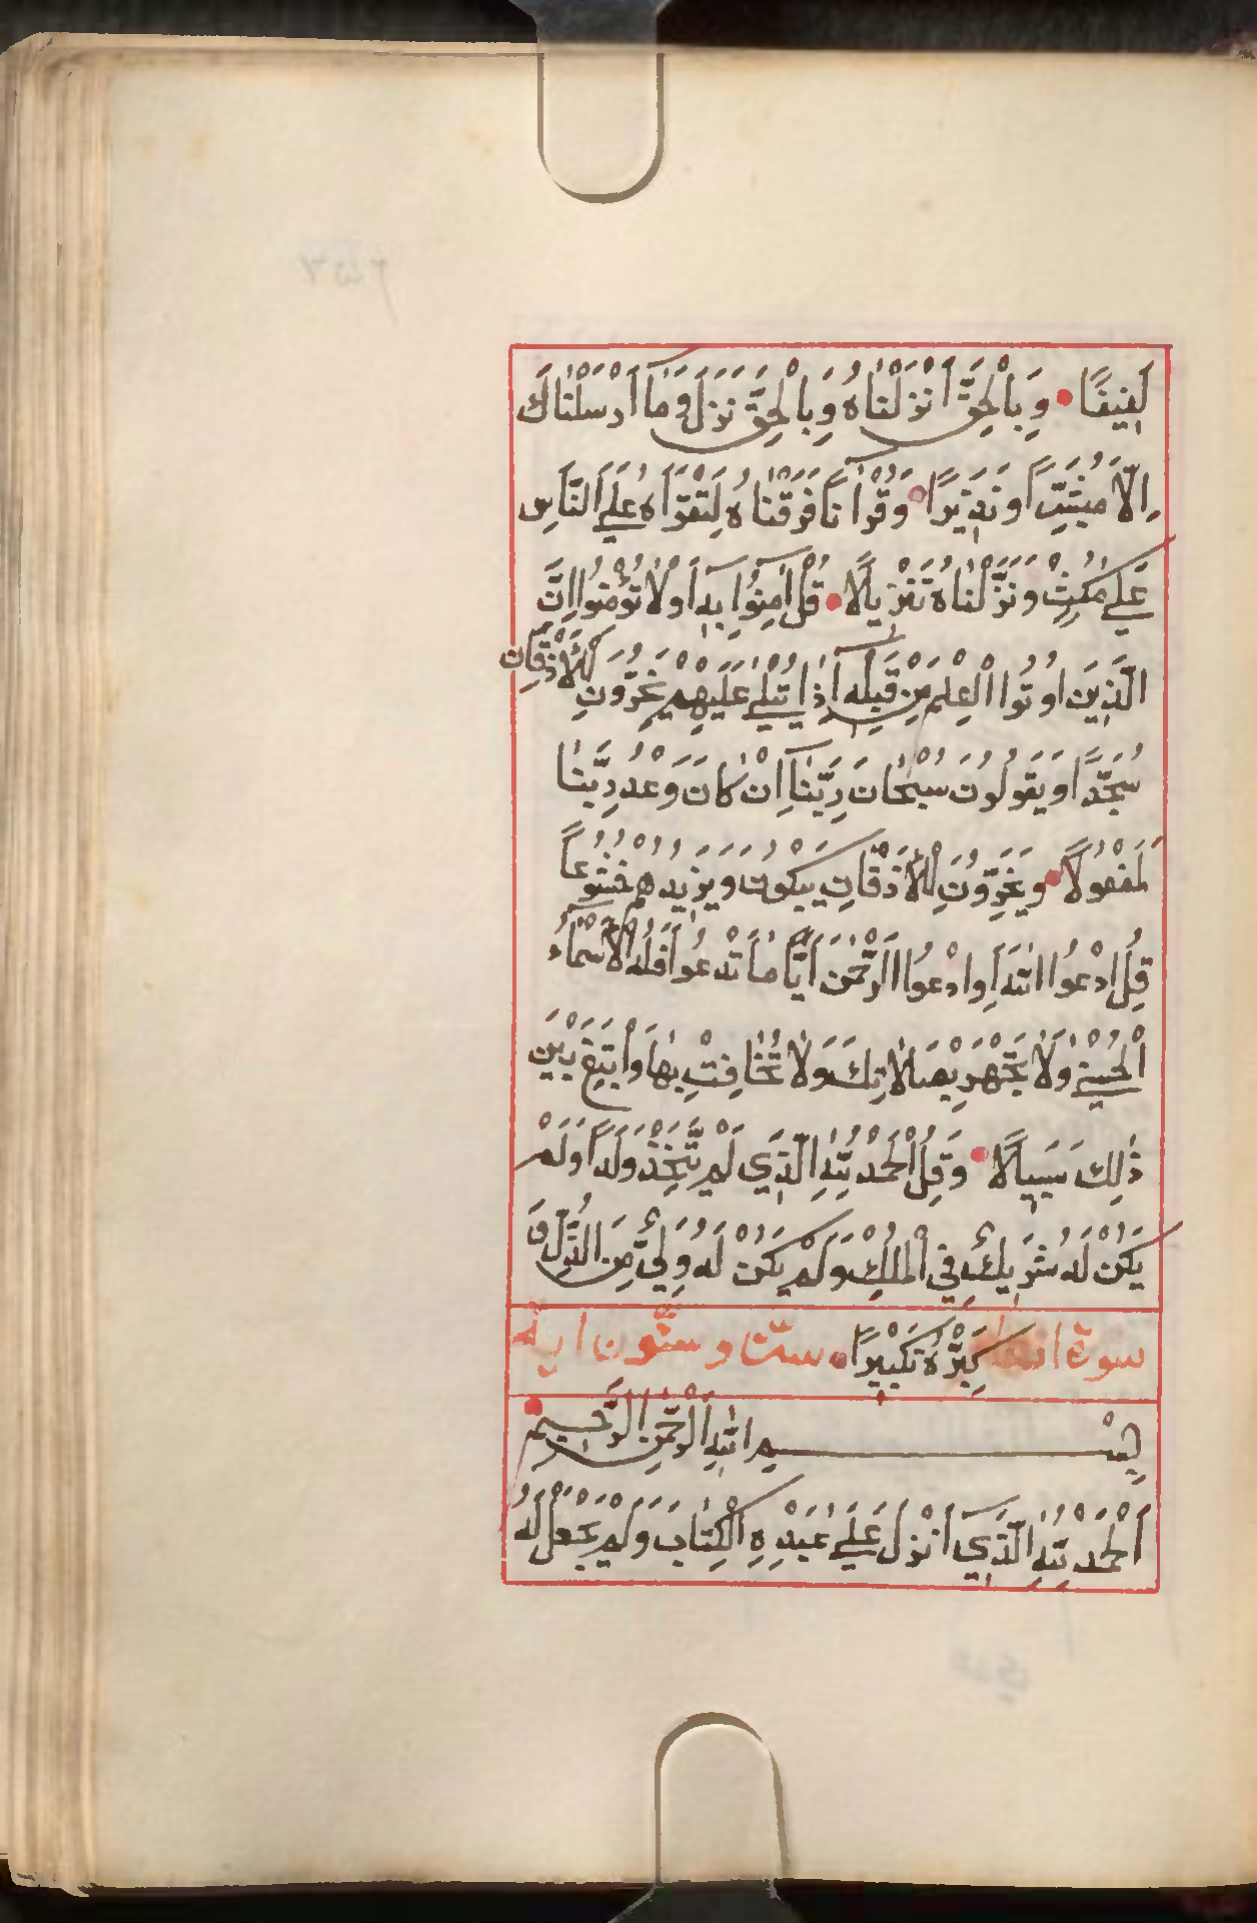 لَفِيفًا وَبِالْحَقِّ أَنْزَلْنَاهُ وَبِالْحَقِّ نَزَلَ وَمَا أَرْسَلْنَاكَ
اِلَّا مُبَشِّرًا وَنَذِيرًا وَقُرْآنًا فَرَقْنَاهُ لِتَقْرَأَهُ عَلَى النَّاسِ
عَلَى مُكْثٍ وَنَزَّلْنَاهُ تَنْزِيلًا قُلْ آمِنُوا بِهِ أَوْ لَا تُؤْمِنُوا إِنَّ
الَّذِينَ اُوتُوا الْعِلْمَ مِنْ قَبْلِهِ إِذَا يُتْلَى عَلَيْهِمْ يَخِرُّونَ لِلْأَذْقَانِ
سُجَّدًا وَيَقُولُونَ سُبْحَانَ رَبِّنَا اِنْ كَانَ وَعْدُ رَبِّنَا
لَمَفْعُولًا وَيَخِرُّونَ لِلْأَذْقَانِ يَبْكُونَ وَيَزِيدُهُمْ خُشُوعًا
قُلِ ادْعُوا اللَّهَ أَوِ ادْعُوا الرَّحْمَنَ أَيًّا مَا تَدْعُوا فَلَهُ الْأَسْمَاءُ
الْحُسْنَى وَلَا تَجْهَرْ بِصَلَاتِكَ وَلَا تُخَافِتْ بِهَا وَابْتَغِ بَيْنَ
ذَلِكَ سَبِيلًا وَقُلِ الْحَمْدُ لِلَّهِ الَّذِي لَمْ يَتَّخِذْ وَلَدًا وَلَمْ
يَكُنْ لَهُ شَرِيكٌ فِي الْمُلْكِ وَلَمْ يَكُنْ لَهُ وَلِيٌّ مِنَ الذُّلِّ وَ
سورة كَبِّرْهُ تَكْبِيرًا ستّ وستّون اية
بِسْمِ اللَّهِ الرَّحْمَنِ الرَّحِيمِ
اَلْحَمْدُ لِلَّهِ الَّذِي أَنْزَلَ عَلَى عَبْدِهِ الْكِتَابَ وَلَمْ يَجْعَلْ لَهُ